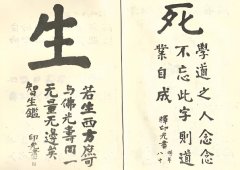 死
學道之人念念
不忘此字則道
業自成
釋印光書
八十
生
若生西方庶可
与佛光壽同一
无量无邊矣
智生鑑
印光